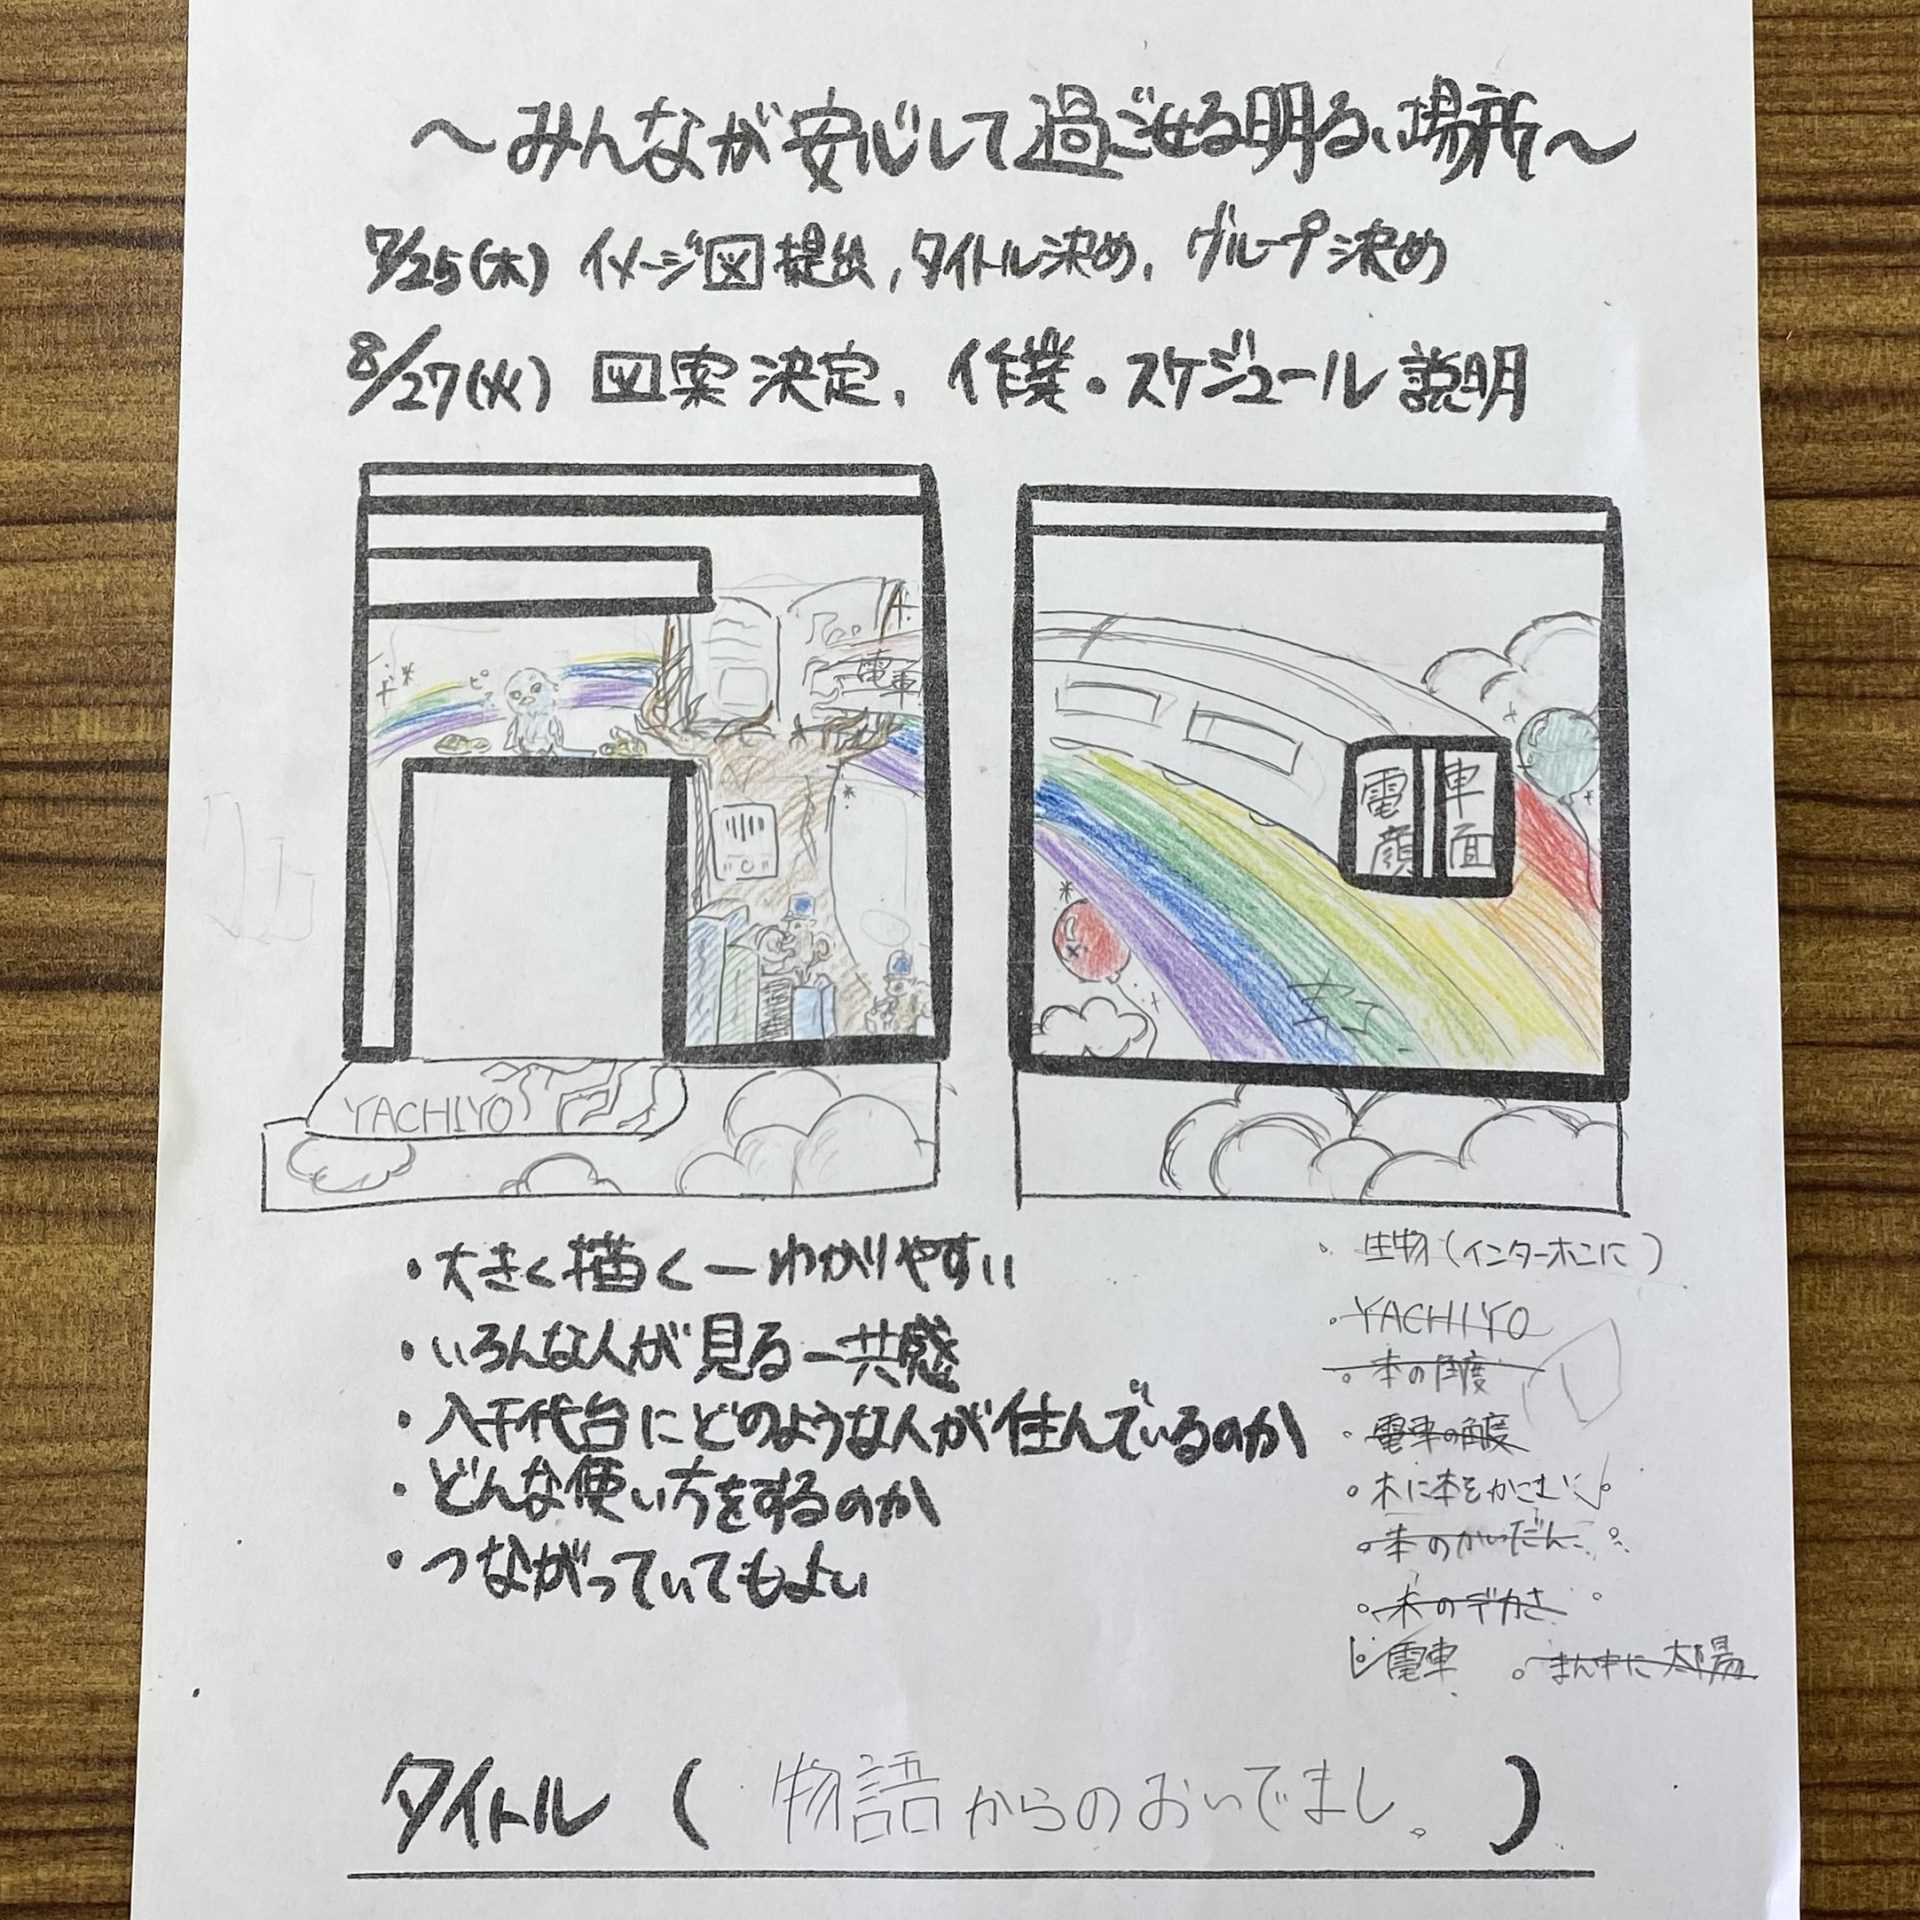 ～みんなが安心して過ごせる明るい場所～
7/25(木) イメージ図提出, タイトル決め, グループ決め
8/27(火) 図案決定, 作業・スケジュール説明
ピ
電車
電車
顔面
虹
YACHIYO
・大きく描く—わかりやすい
・いろんな人が見る—共感
・八千代台にどのような人が住んでいるのか
・どんな使い方をするのか
・つながっていてもよい
。生物(インターホンに)
。YACHIYO
。本の角度
。電車の角度
。木に本をかこむ
。本のかいだん
。木のデカさ
電車 。まん中に太陽
タイトル ( 物語からのおいでまし。 )